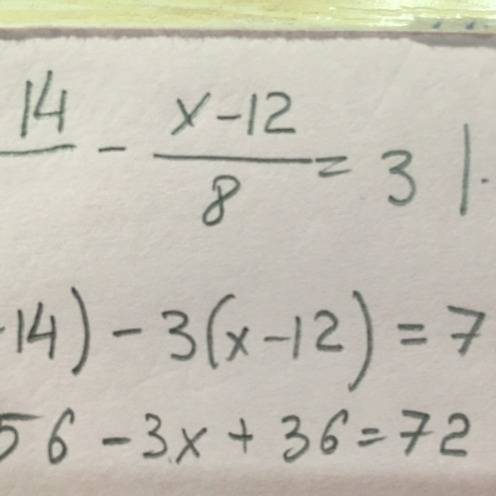 14/ - (x-12)/8 = 3 |·
14) - 3(x-12) = 7
56 - 3x + 36 = 72